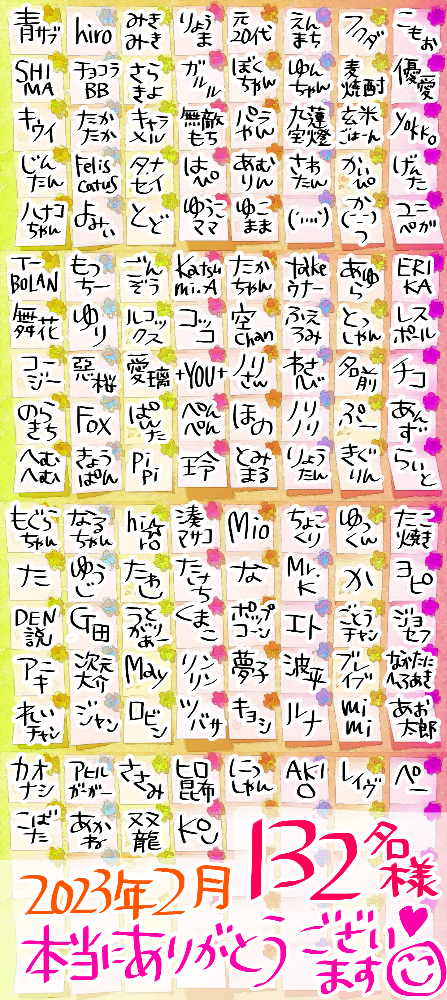 青サブ hiro みきみき りょうま 元20代 えんまち フクダ こもお
SHIMA チョコラBB さらきよ ガルル ぼくちゃん ゆんちゃん 麦焼酎 優愛
キウイ たかたか キャラメル 無敵もち パラやん 九蓮宝燈 玄米ごはーん Yokko
じんたん Felis Catus タナセイ はぴ あむりん さわたん かいぴ げんた
ハナコちゃん よみい とど ゆうこママ ゆこまま (´･･･`) か(ー)つ ユニペガ
T-BOLAN もっちー ごんぞう Katsumi.A たかちゃん takeウナー あゆら ERIKA
舞花 ゆり ルコックス コッコ 空chan ふえろみ とっしゃん レスポール
コージー 惡桜 愛璃 +YOU+ ノリさん わさべび 名前 チコ
のらきち Fox ぱんた ぺんぺん ほの ノリノリ ぷー あんず
へむへむ きょうぱん PiPi 玲 とみまる りょうたん きぐりん らいと
もぐらちゃん なるちゃん hiro 湊マサコ Mio ちょこくり ゆっくん たこ焼き
た ゆうじ たわし たさち な Mr.K か ヨピ
DEN説 G田 うとがりあー くまこ ポップコーン エト ごとうチャン ジョセフ
アニキ 次元大介 May リンリン 夢子 波平 ブレイブ なかたにへろあき
れいチャン ジャン ロビン ツバサ キヨシ ルナ mimi あお太郎
カオナシ アヒルガーガー ささみ ヒロ昆布 にっしゃん AKIO レイヴ ペー
こばた あかね 双龍 Kou
2023年2月 132名様
本当にありがとうございます